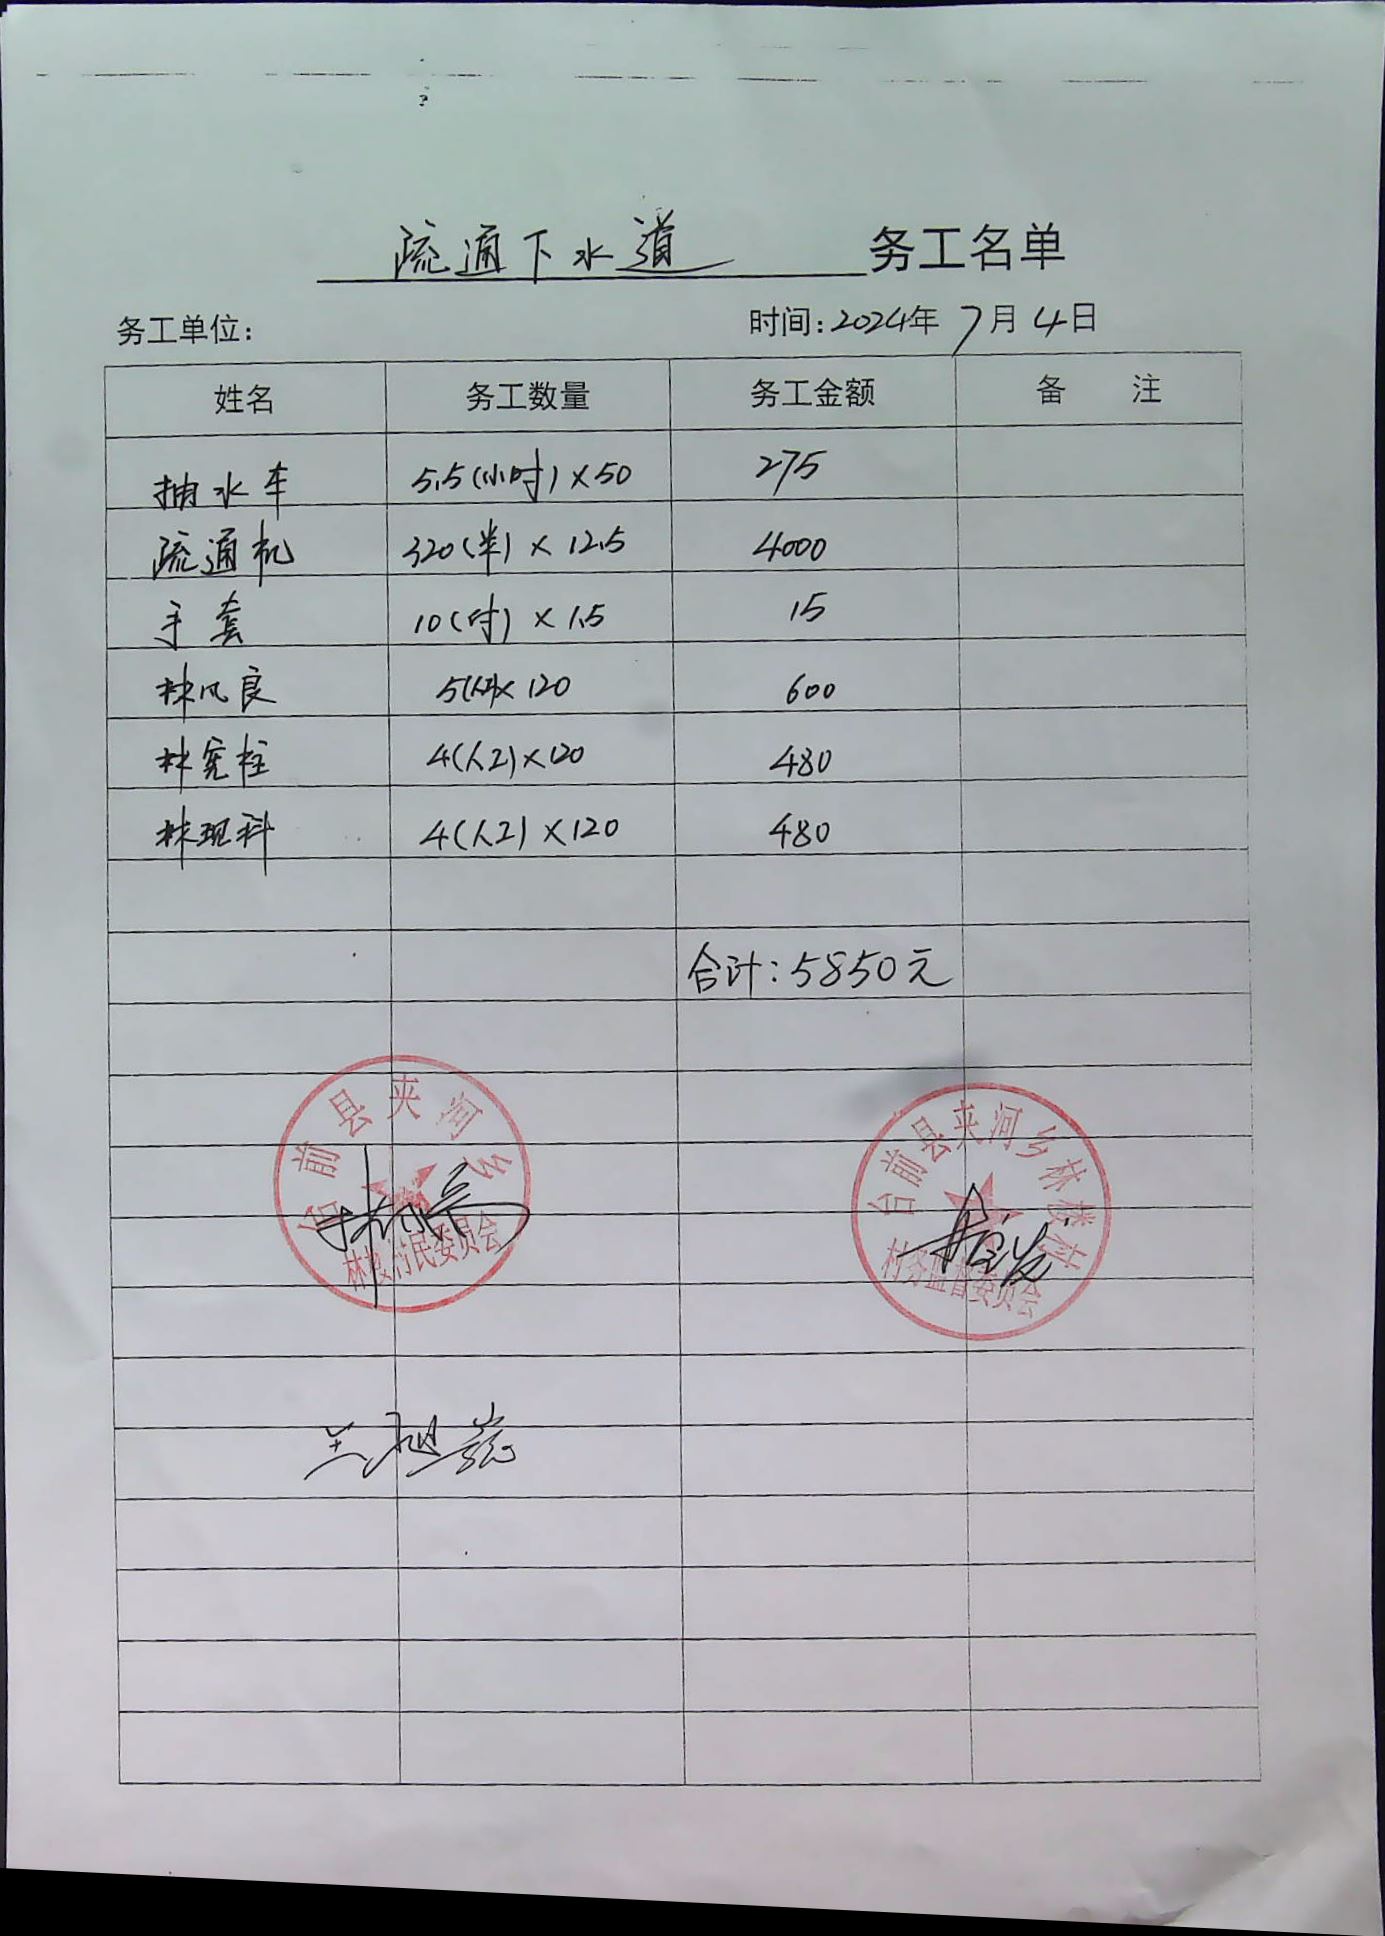 疏通下水道 务工名单
务工单位: 时间:2024年7月4日
姓名 务工数量 务工金额 备 注
抽水车 5.5(小时)×50 275
疏通机 320(米)×12.5 4000
手套 10(付)×1.5 15
林风良 5(人工)×120 600
林宪柱 4(人工)×120 480
林现科 4(人工)×120 480
合计:5850元
台前县夹河乡
林楼村民委员会
台前县夹河乡林楼村
村务监督委员会